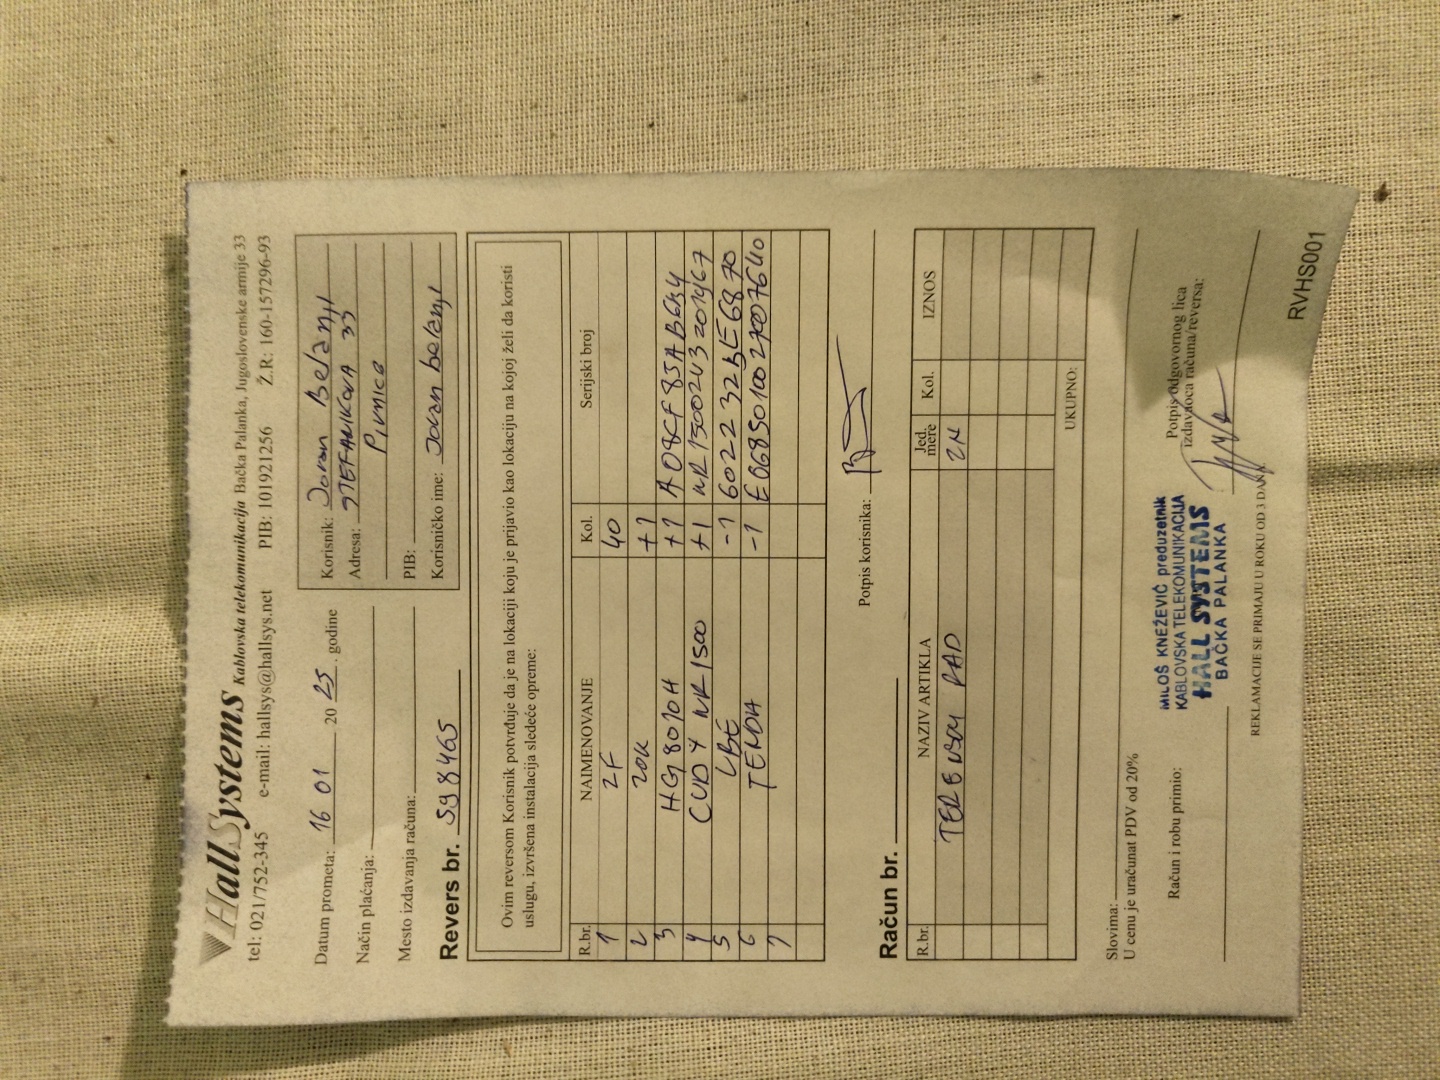 HallSystems Kablovska telekomunikacija Bačka Palanka, Jugoslovenske armije 33
tel: 021/752-345 e-mail: hallsys@hallsys.net PIB: 101921256 Ž.R: 160-157296-93
Datum prometa: 16 01 20 25. godine
Način plaćanja:
Mesto izdavanja računa:
Korisnik: Jovan Belanyi
Adresa: STEFANIKOVA 33
Pivnice
PIB:
Korisničko ime: Jovan belanyi
Revers br. 598465
Ovim reversom Korisnik potvrđuje da je na lokaciji koju je prijavio kao lokaciju na kojoj želi da koristi
uslugu, izvršena instalacija sledeće opreme:
R.br. NAIMENOVANJE Kol. Serijski broj
1 2F 40
2 ZOK +1
3 HG8010H +1
4 CUDY WR1500 +1
5 LBE -1
6 TENDA -1
7
Potpis korisnika:
Račun br.
R.br. NAZIV ARTIKLA Jed. mere Kol. IZNOS
TERENSKI RAD
UKUPNO:
Slovima:
U cenu je uračunat PDV od 20%
Račun i robu primio:
MILOŠ KNEŽEVIĆ preduzetnik
KABLOVSKA TELEKOMUNIKACIJA
HALL SYSTEMS
BAČKA PALANKA
Potpis odgovornog lica
izdavaoca računa/reversa:
REKLAMACIJE SE PRIMAJU U ROKU OD 3 DANA
RVHS001